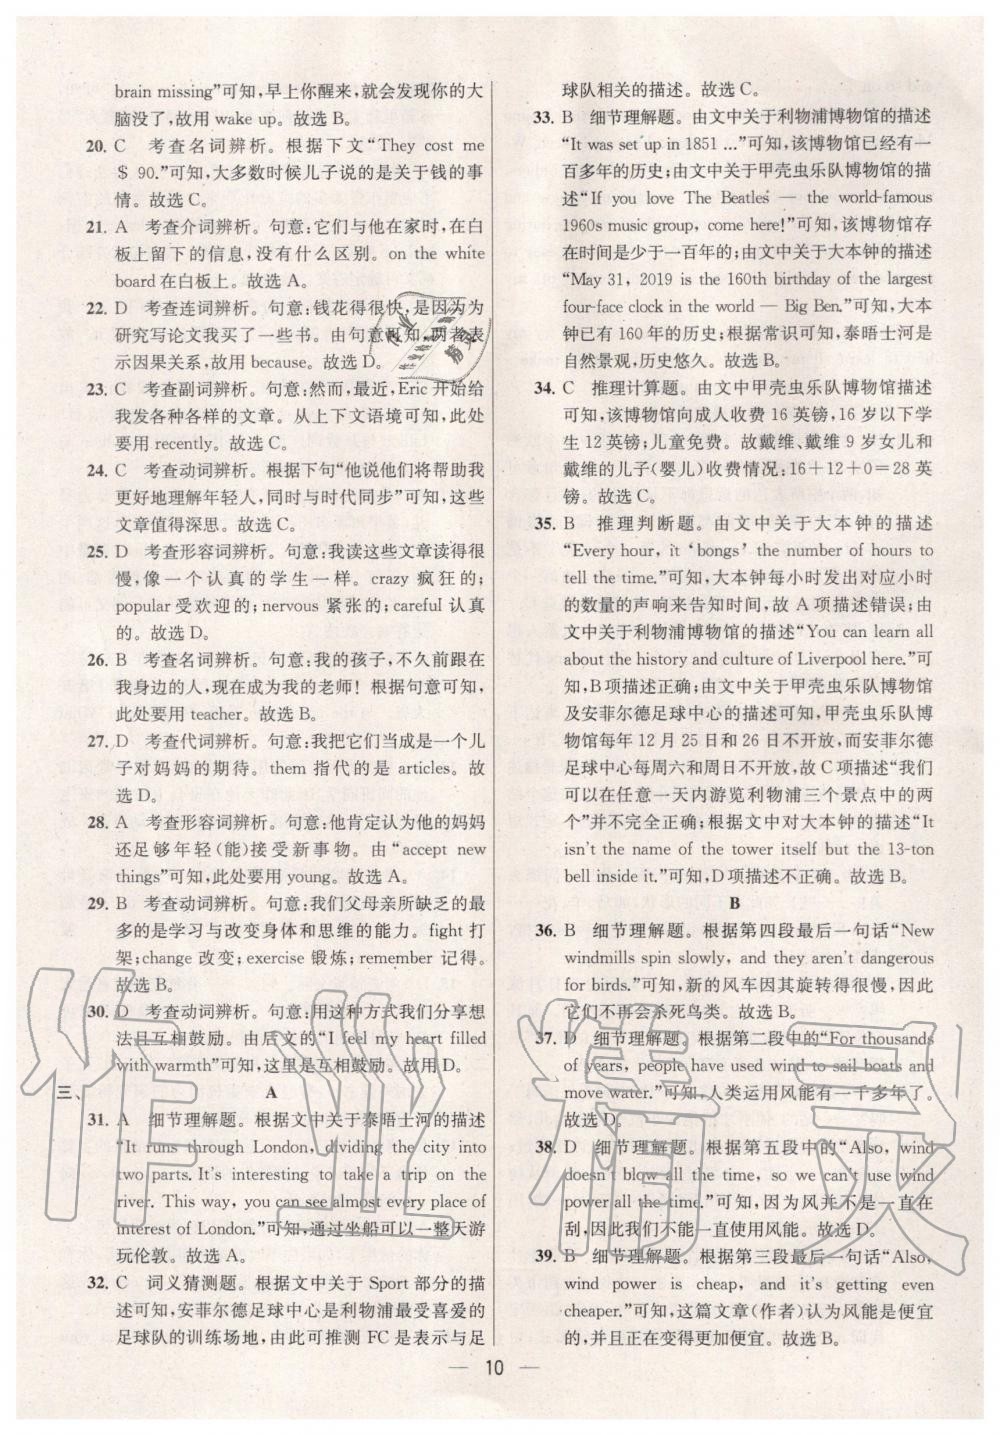 brain missing”可知,早上你醒来,就会发现你的大
脑没了,故用 wake up。故选 B。
20. C 考查名词辨析。根据下文“They cost me
$ 90.”可知,大多数时候儿子说的是关于钱的事
情。故选 C。
21. A 考查介词辨析。句意:它们与他在家时,在白
板上留下的信息,没有什么区别。on the white
board 在白板上。故选 A。
22. D 考查连词辨析。句意:钱花得很快,是因为为
研究写论文我买了一些书。由句意可知,两者表
示因果关系,故用 because。故选 D。
23. C 考查副词辨析。句意:然而,最近,Eric 开始给
我发各种各样的文章。从上下文语境可知,此处
要用 recently。故选 C。
24. C 考查动词辨析。根据下句“他说他们将帮助我
更好地理解年轻人,同时与时代同步”可知,这些
文章值得深思。故选 C。
25. D 考查形容词辨析。句意:我读这些文章读得很
慢,像一个认真的学生一样。crazy 疯狂的;
popular 受欢迎的;nervous 紧张的;careful 认真
的。故选 D。
26. B 考查名词辨析。句意:我的孩子,不久前跟在
我身边的人,现在成为我的老师！根据句意可知,
此处要用 teacher。故选 B。
27. D 考查代词辨析。句意:我把它们当成是一个儿
子对妈妈的期待。them 指代的是 articles。故
选 D。
28. A 考查形容词辨析。句意:他肯定认为他的妈妈
还足够年轻(能)接受新事物。由“accept new
things”可知,此处要用 young。故选 A。
29. B 考查动词辨析。句意:我们父母亲所缺乏的最
多的是学习与改变身体和思维的能力。fight 打
架;change 改变;exercise 锻炼;remember 记得。
故选 B。
30. D 考查动词辨析。句意:用这种方式我们分享想
法且互相鼓励。由后文的“I feel my heart filled
with warmth”可知,这里是互相鼓励。故用 D。
三、 A
31. A 细节理解题。根据文中关于泰晤士河的描述
“It runs through London, dividing the city into
two parts. It's interesting to take a trip on the
river. This way, you can see almost every place of
interest of London.”可知,通过坐船可以一整天游
玩伦敦。故选 A。
32. C 词义猜测题。根据文中关于 Sport 部分的描
述可知,安菲尔德足球中心是利物浦最受喜爱的
足球队的训练场地,由此可推测 FC 是表示与足
球队相关的描述。故选 C。
33. B 细节理解题。由文中关于利物浦博物馆的描述
“It was set up in 1851 ...”可知,该博物馆已经有一
百多年的历史;由文中关于甲壳虫乐队博物馆的描
述“If you love The Beatles — the world-famous
1960s music group, come here!”可知,该博物馆存
在时间是少于一百年的;由文中关于大本钟的描述
“May 31, 2019 is the 160th birthday of the largest
four-face clock in the world — Big Ben.”可知,大本
钟已有 160 年的历史;根据常识可知,泰晤士河是
自然景观,历史悠久。故选 B。
34. C 推理计算题。由文中甲壳虫乐队博物馆的描述
可知,该博物馆向成人收费 16 英镑,16 岁以下学
生 12 英镑;儿童免费。故戴维、戴维 9 岁女儿和
戴维的儿子(婴儿)收费情况:16+12+0=28 英
镑。故选 C。
35. B 推理判断题。由文中关于大本钟的描述
“Every hour, it ‘bongs’ the number of hours to
tell the time.”可知,大本钟每小时发出对应小时
的数量的声响来告知时间,故 A 项描述错误;由
文中关于利物浦博物馆的描述“You can learn all
about the history and culture of Liverpool here.”可
知,B项描述正确;由文中关于甲壳虫乐队博物馆
及安菲尔德足球中心的描述可知,甲壳虫乐队博
物馆每年 12 月 25 日和 26 日不开放,而安菲尔德
足球中心每周六和周日不开放,故 C 项描述“我们
可以在任意一天内游览利物浦三个景点中的两
个”并不完全正确;根据文中对大本钟的描述“It
isn't the name of the tower itself but the 13-ton
bell inside it.”可知,D项描述不正确。故选 B。
B
36. B 细节理解题。根据第四段最后一句话“New
windmills spin slowly, and they aren't dangerous
for birds.”可知,新的风车因其旋转得很慢,因此
它们不再会杀死鸟类。故选 B。
37. D 细节理解题。根据第二段中的“For thousands
of years, people have used wind to sail boats and
move water.”可知,人类运用风能有一千多年了。
故选 D。
38. D 细节理解题。根据第五段中的“Also, wind
doesn't blow all the time, so we can't use wind
power all the time.”可知,因为风并不是一直在
刮,因此我们不能一直使用风能。故选 D。
39. B 细节理解题。根据第三段最后一句话“Also,
wind power is cheap, and it's getting even
cheaper.”可知,这篇文章(作者)认为风能是便宜
的,并且正在变得更加便宜。故选 B。
— 10 —
作业精灵